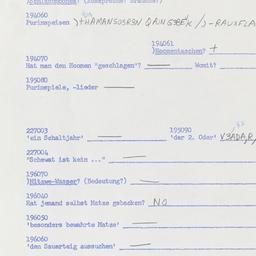 194060
Purimspeisen
194061
)Hoomentaschen? +
194070
Hat man den Hoomen "geschlagen"? Womit?
195080
Purimspiele, -lieder
227003 195090
'ein Schaltjahr' 'der 2. Oder'
227004
"Schewat ist kein ..."
196070
)Mitzwe-Wasser? (Bedeutung?)
196040
Hat jemand selbst Matze gebacken? NO
196050
'besonders bewahrte Matze'
196060
'den Sauerteig aussuchen'